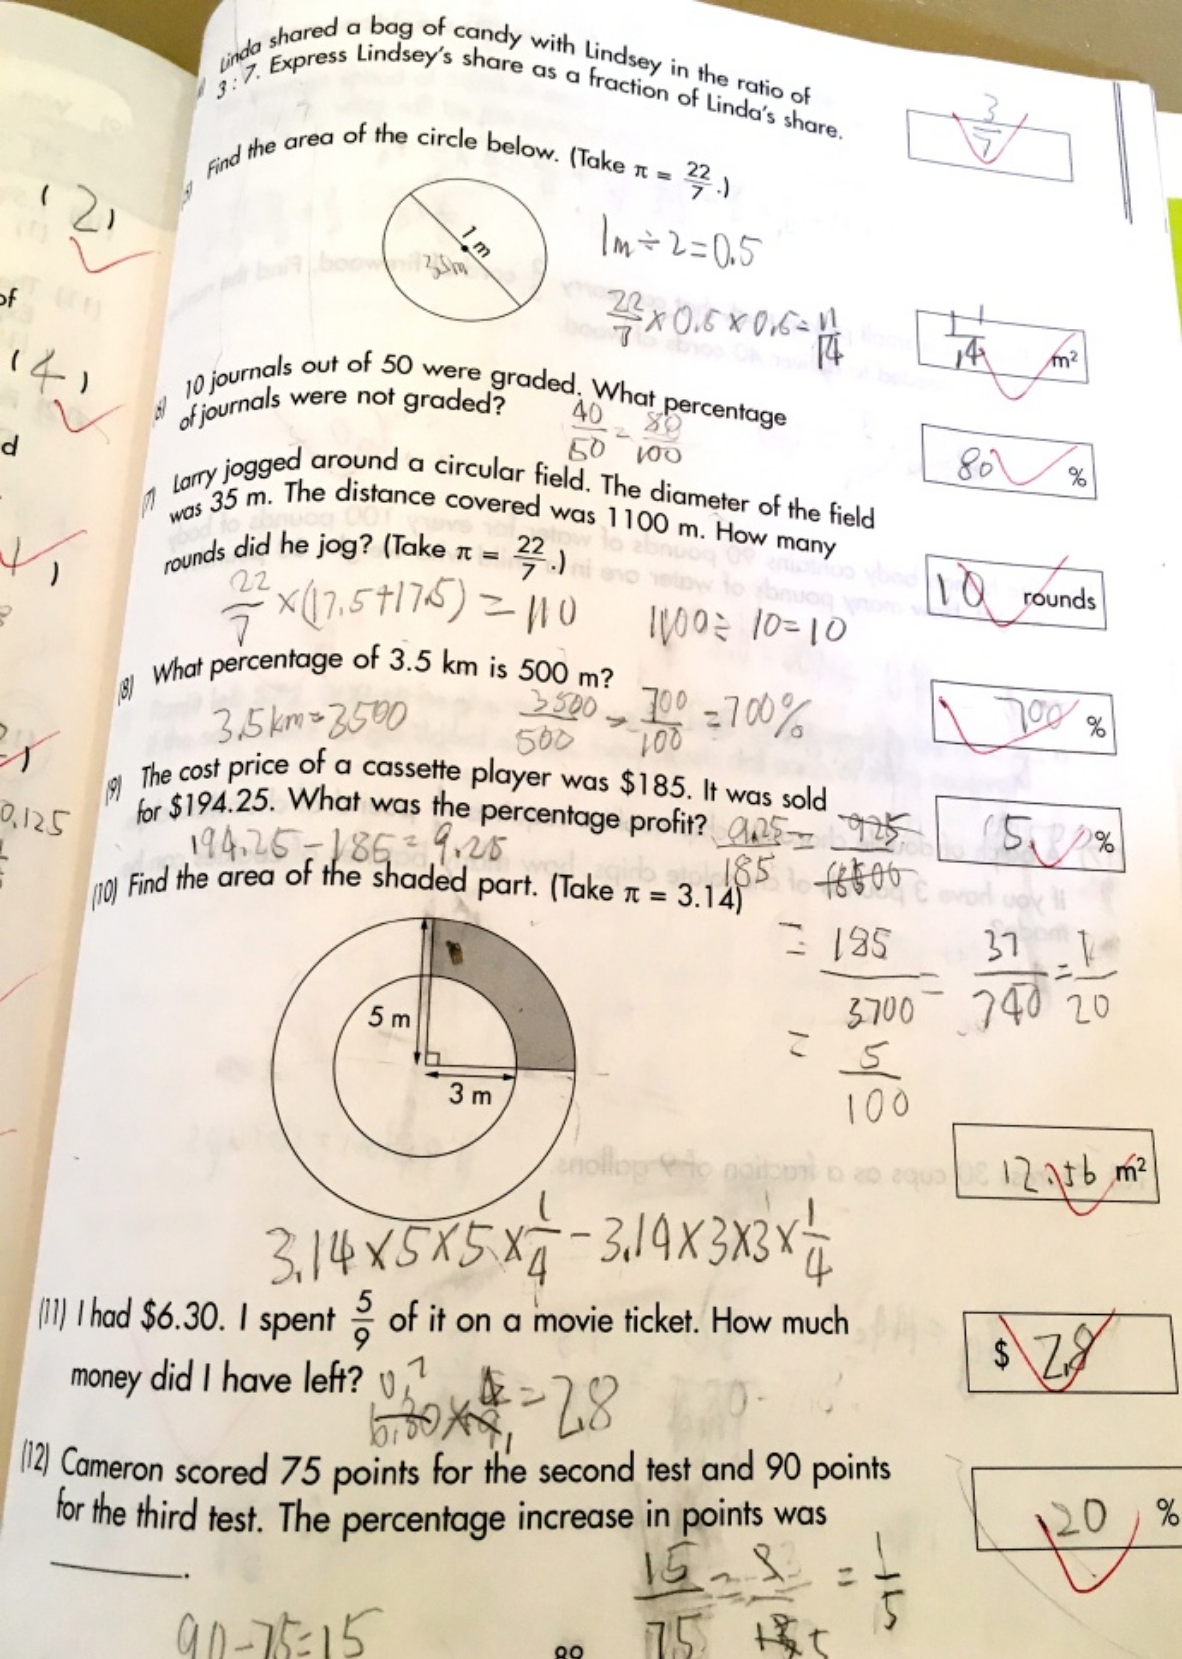 Linda shared a bag of candy with Lindsey in the ratio of
3 : 7. Express Lindsey's share as a fraction of Linda's share.
3/7
Find the area of the circle below. (Take π = 22/7.)
1 m
1m ÷ 2 = 0.5
22/7 × 0.5 × 0.5 = 11/14
11/14 m²
(6) 10 journals out of 50 were graded. What percentage
of journals were not graded?
40/50 = 80/100
80 %
(7) Larry jogged around a circular field. The diameter of the field
was 35 m. The distance covered was 1100 m. How many
rounds did he jog? (Take π = 22/7.)
22/7 × (17.5+17.5) = 110
1100 ÷ 10 = 10
10 rounds
(8) What percentage of 3.5 km is 500 m?
3.5km = 3500
3500/500 = 700/100 = 700%
700 %
(9) The cost price of a cassette player was $185. It was sold
for $194.25. What was the percentage profit?
194.25 - 185 = 9.25
9.25/185 = 925/
5 %
= 185/3700 = 37/740 = 1/20
= 5/100
(10) Find the area of the shaded part. (Take π = 3.14)
5 m
3 m
12.56 m²
3.14 × 5 × 5 × 1/4 - 3.14 × 3 × 3 × 1/4
(11) I had $6.30. I spent 5/9 of it on a movie ticket. How much
money did I have left?
= 2.8
$ 2.8
(12) Cameron scored 75 points for the second test and 90 points
for the third test. The percentage increase in points was
______.
20 %
90 - 75 = 15
15/75
= 1/5
(2)
(4)
of
d
0.125